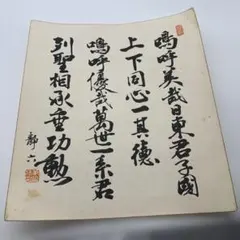 嗚呼美哉日東君子國
上下同心一其德
嗚呼優哉萬世一系君
列聖相承垂功勲
静六